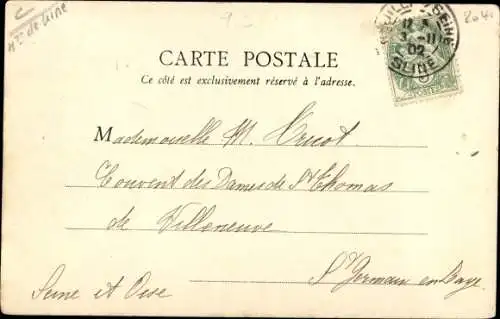 C
Hte de Seine
SEINE
12
3 -11
02
SEINE
POSTES
CARTE POSTALE
Ce côté est exclusivement réservé à l'adresse.
Mademoiselle M.
Couvent des Dames de St Thomas
de Villeneuve
St Germain en Laye
Seine et Oise